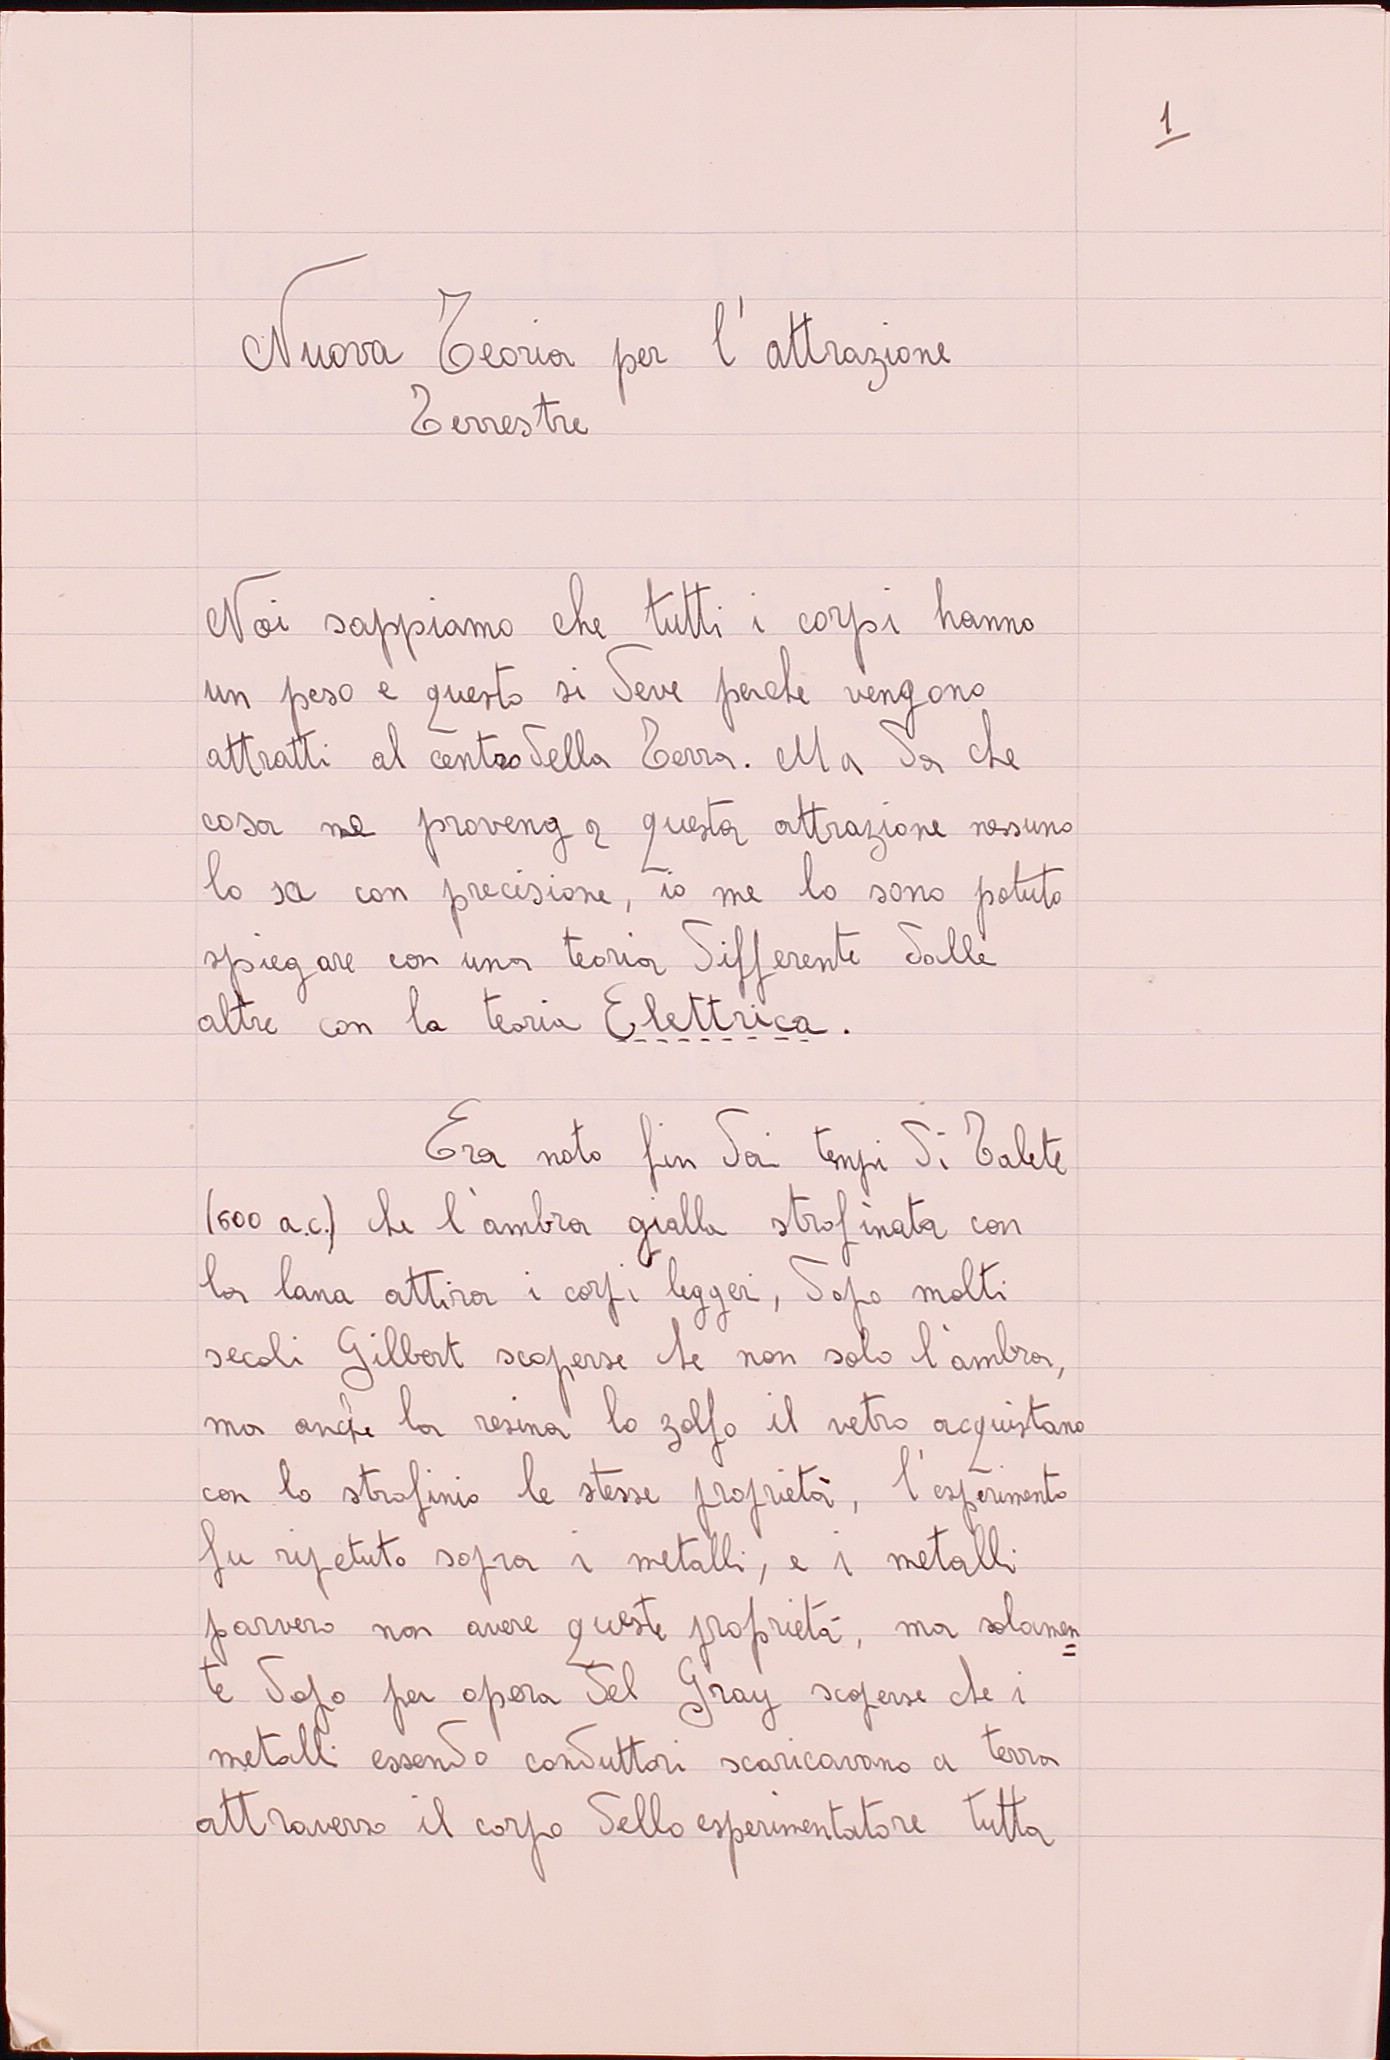 1
Nuova Teoria per l'attrazione
Terrestre
Noi sappiamo che tutti i corpi hanno
un peso e questo si deve perchè vengono
attratti al centro della Terra. Ma da che
cosa ne provenga questa attrazione nessuno
lo sa con precisione, io me lo sono potuto
spiegare con una teoria differente dalle
altre con la teoria Elettrica.
Era noto fin dai tempi di Talete
(600 a.c.) che l'ambra gialla strofinata con
la lana attira i corpi leggeri, dopo molti
secoli Gilbert scoperse che non solo l'ambra,
ma anche la resina lo zolfo il vetro acquistano
con lo strofinio le stesse proprietà, l'esperimento
fu ripetuto sopra i metalli, e i metalli
parvero non avere queste proprietà, ma solamen=
te dopo per opera del Gray scoperse che i
metalli essendo conduttori scaricavano a terra
attraverso il corpo dello esperimentatore tutta